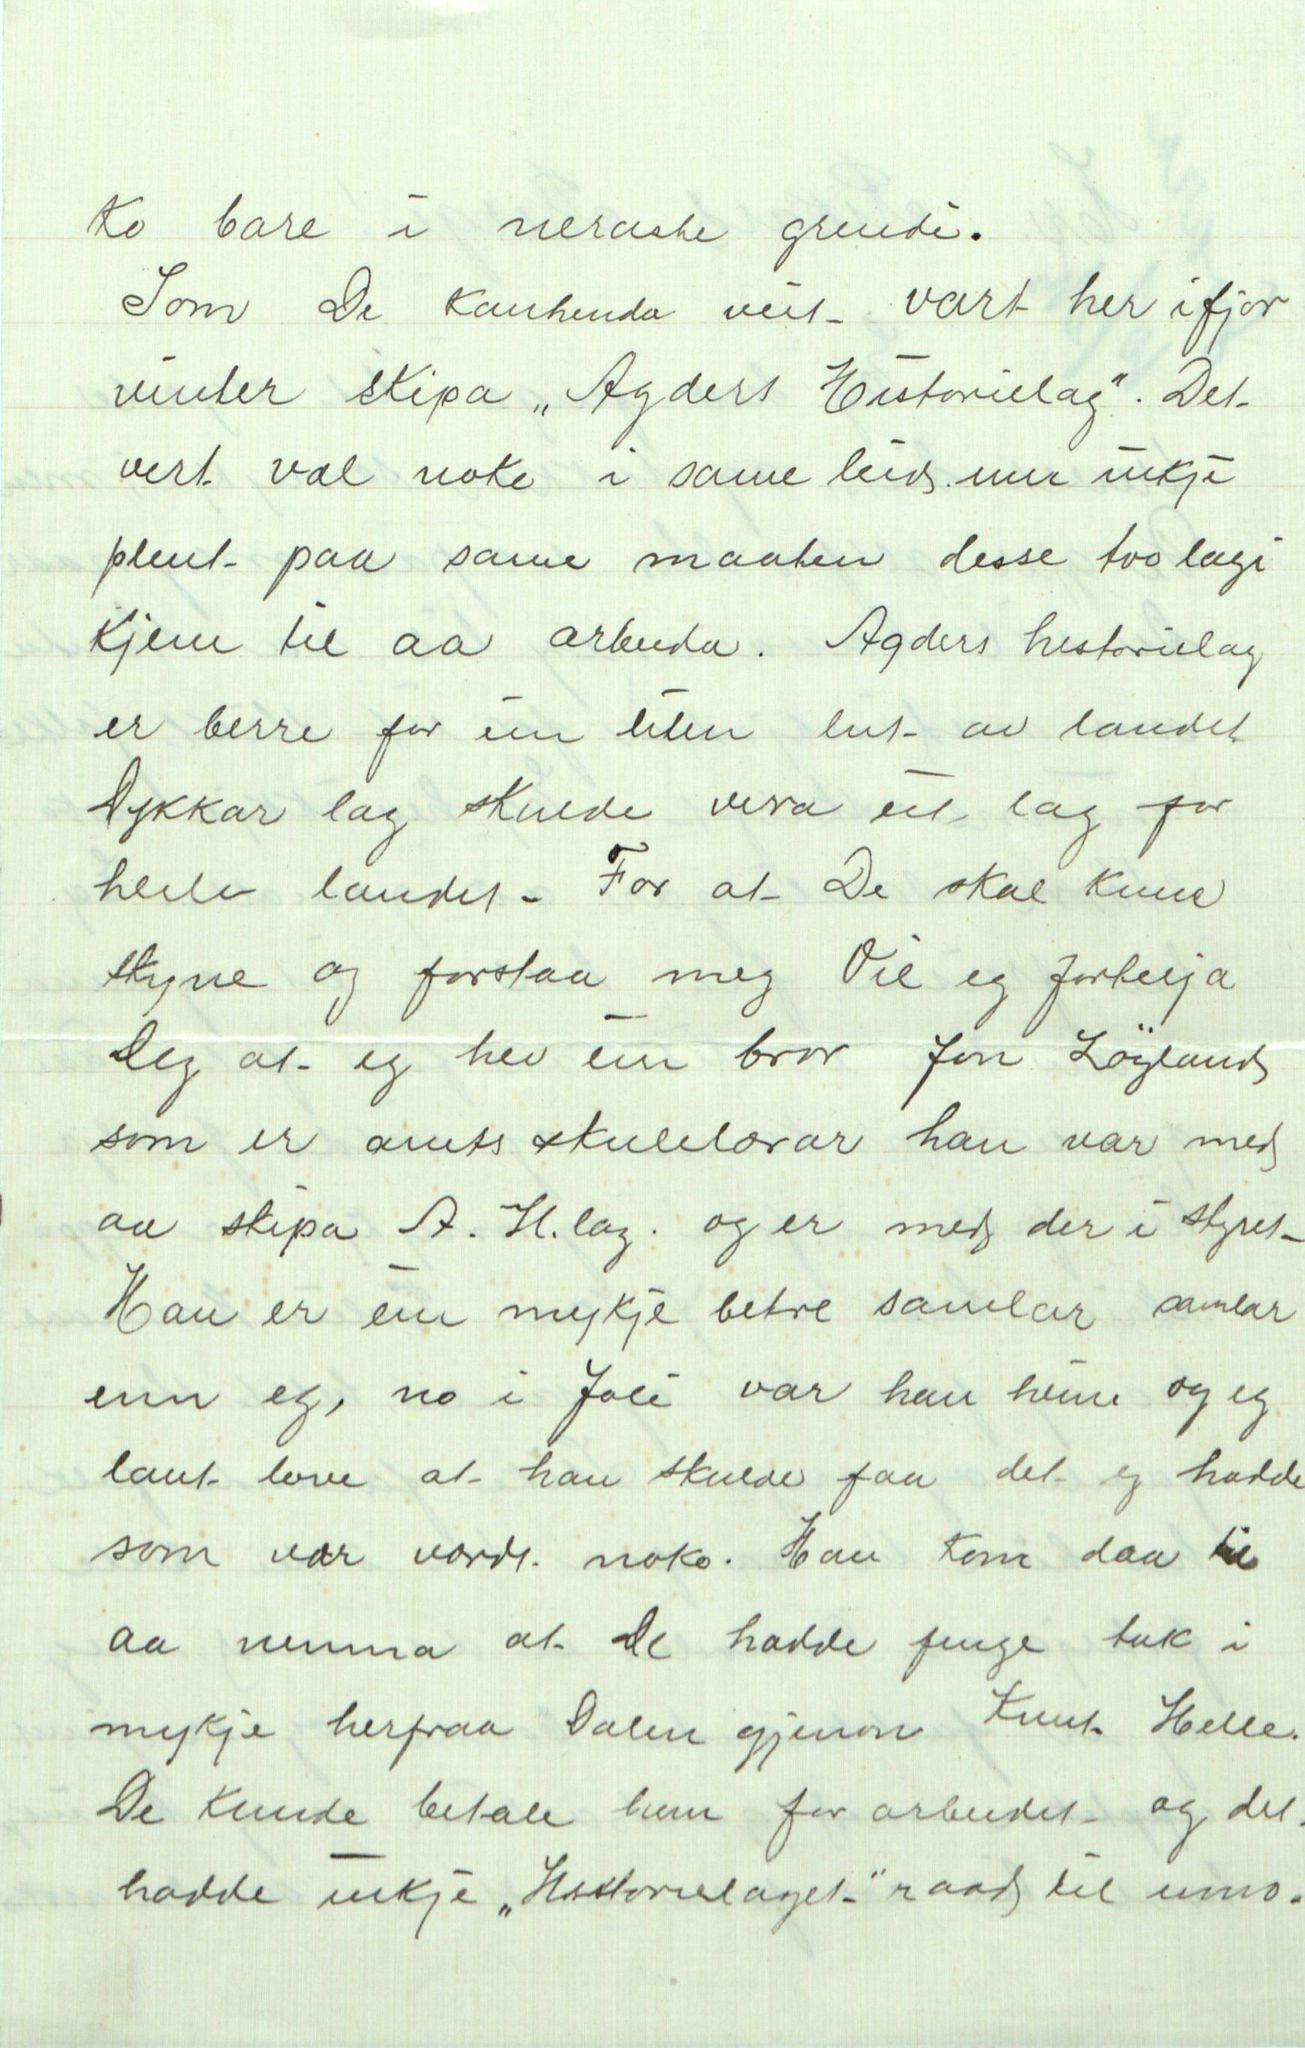 ko bare i neraste grendi.
Som De kanhenda veit vart her ifjor
vinter skipa „Agders Historielag". Det
vert val noke i same leid, men inkje
plent paa same maaten desse tvo lagi
kjem til aa arbeida. Agders historielag
er berre for ein liten lut av landet
Dykkar lag skulde vera eit lag for
heile landet. For at De skal kune
skyne og forstaa meg Vil eg fortelja
Deg at eg hev ein bror Jon Löyland
som er amtsskulelærar han var med
aa skipa A. H. lag. og er med der i styret
Han er ein mykje betre samlar samlar
enn eg, no i Joli var han heime og eg
laut love at han skulde faa det eg hadde
som var verdt noko. Han kom daa til
aa nemna at De hadde fenge tak i
mykje herfraa Dalen gjenom Knut Helle.
De kunde betale hem for arbeidet og det
hadde inkje „Historielaget" raad til enno.